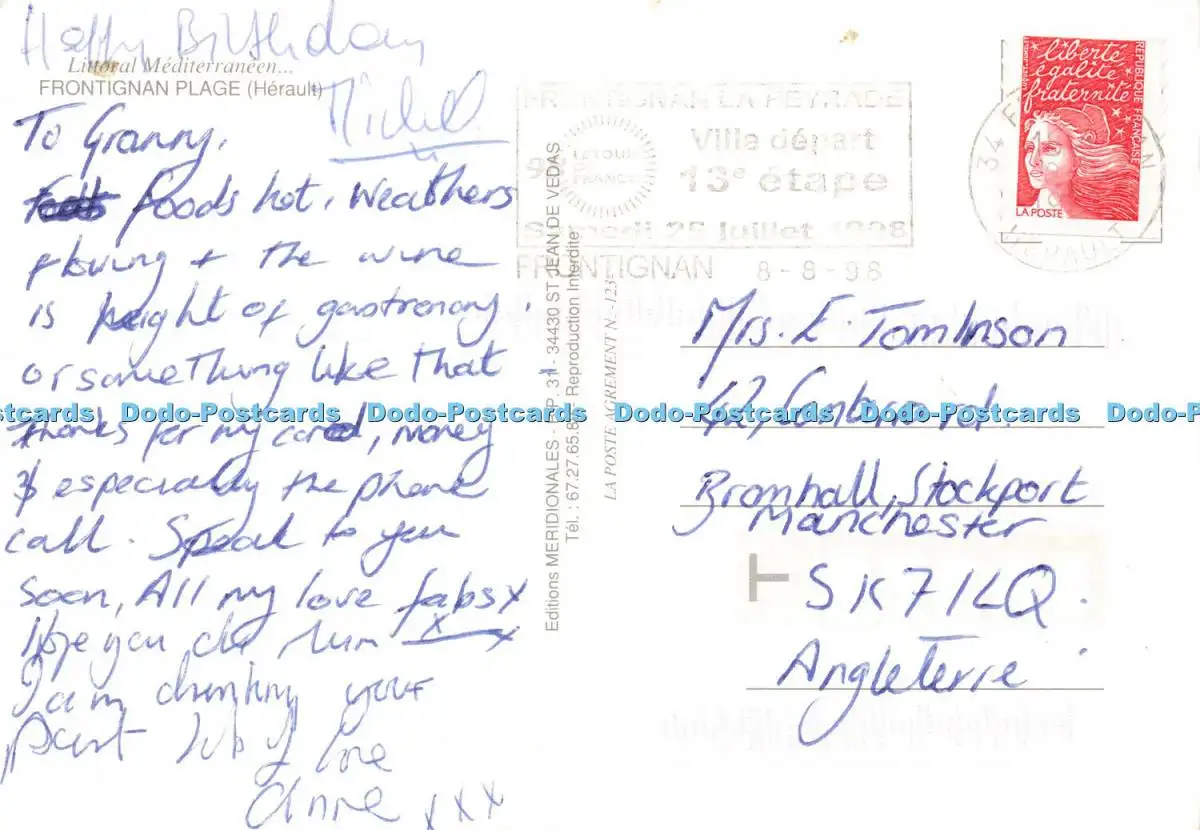 Happy Birthday
Littoral Méditerranéen...
FRONTIGNAN PLAGE (Hérault)
Michel.
To Granny,
foods hot, weathers
flowing + the wine
is height of gastronomy,
or something like that.
Thanks for my card, money
& especially the phone
call. Speak to you
soon, All my love fabs x
x x
Hope you are
I am drinking your
part lots of love
Anne xxx
Editions MERIDIONALES - B.P. 31 - 34430 ST JEAN DE VEDAS
Tél. : 67.27.65.8 Reproduction Interdite
LA POSTE AGREMENT N. 123
FRONTIGNAN LA PEYRADE
Ville départ
13e étape
Samedi 25 Juillet 1998
LE TOUR
FRANCE
98
FRONTIGNAN 8-8-98
34
HERAULT
liberté
égalité
fraternité
RÉPUBLIQUE FRANÇAISE
LA POSTE
Mrs. E Tomlinson
42, rd.
Bramhall, Stockport
Manchester
SK7 1LQ.
Angleterre
Dodo-Postcards Dodo-Postcards Dodo-Postcards Dodo-Postcards